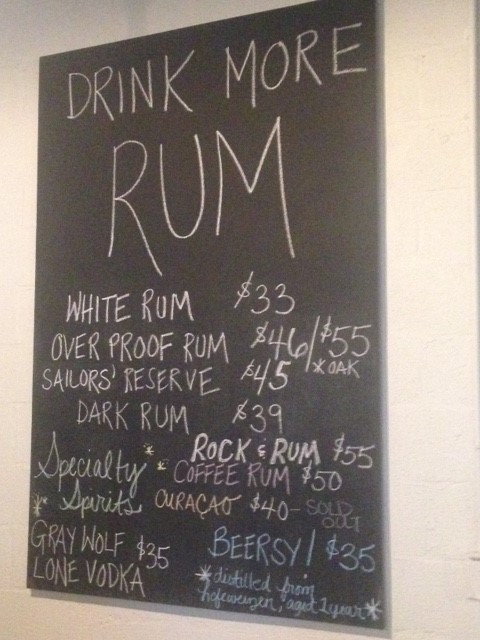 DRINK MORE
RUM
WHITE RUM $33
OVER PROOF RUM $46/$55
*OAK
SAILORS' RESERVE $45
DARK RUM $39
Specialty
Spirits
ROCK & RUM $55
COFFEE RUM $50
CURAÇAO $40 - SOLD
OUT
GRAY WOLF $35
LONE VODKA
BEERSY! $35
*distilled from
hefeweizen, aged 1 year*